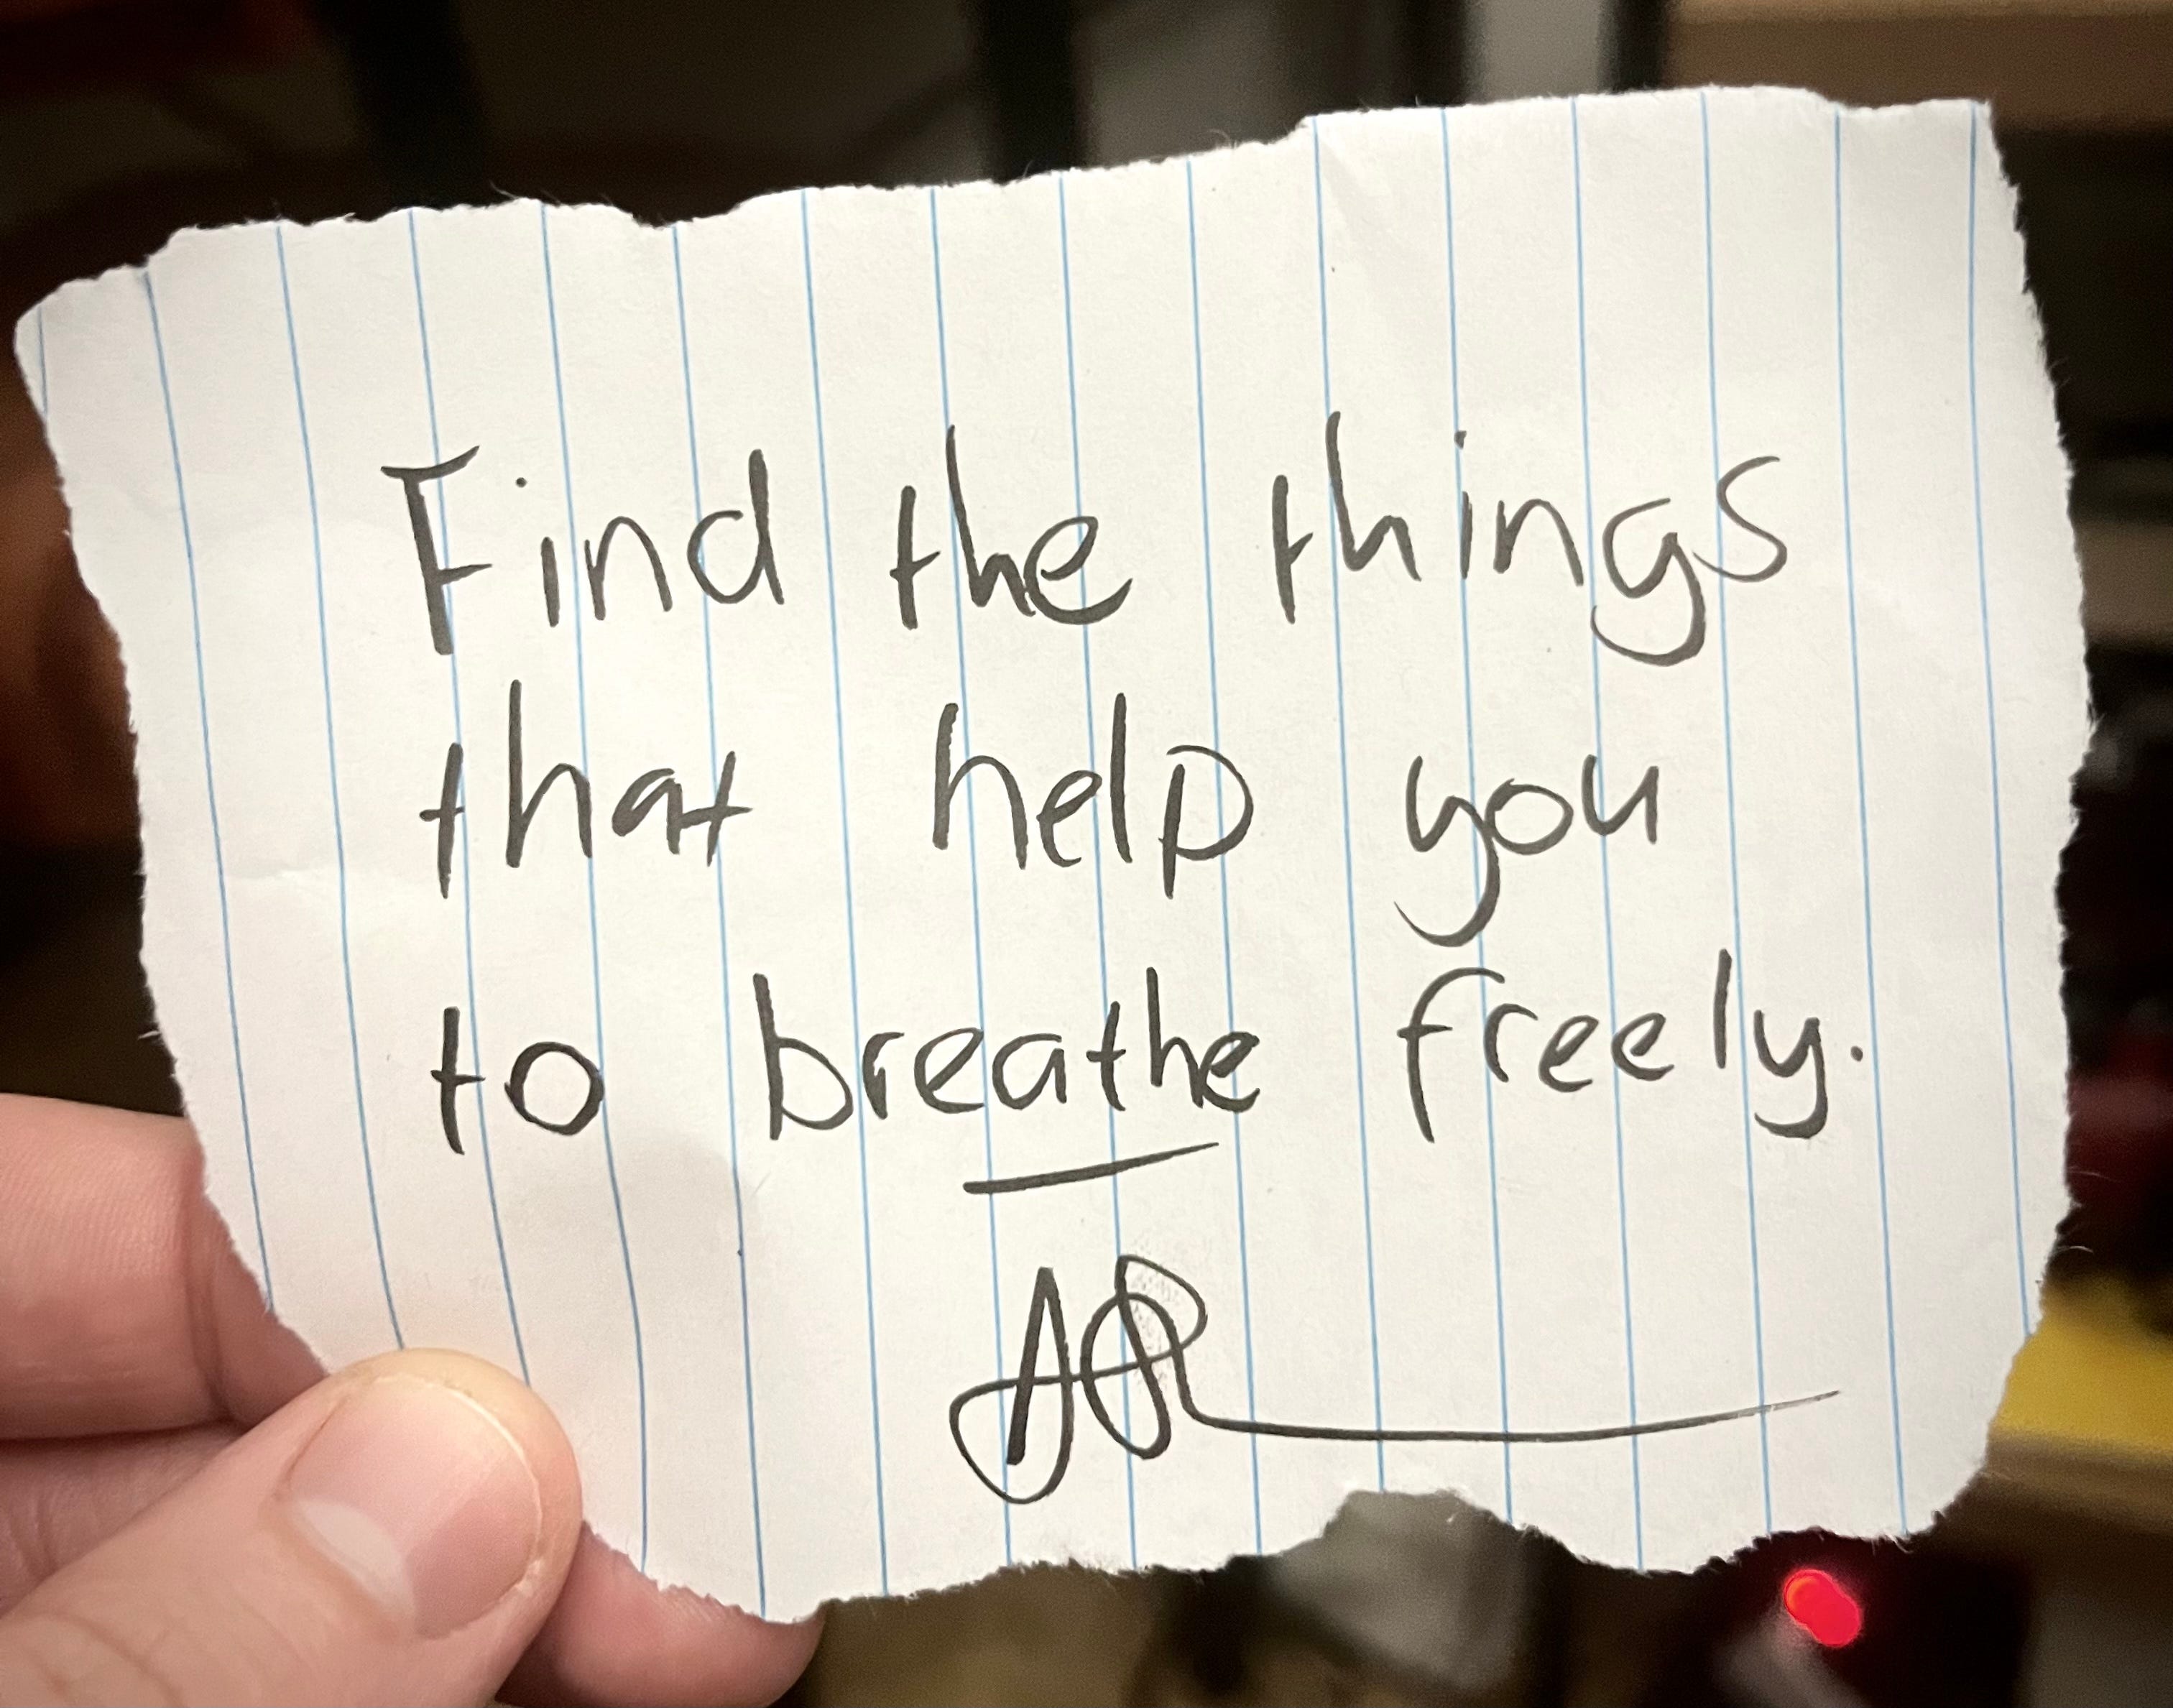 Find the things
that help you
to breathe freely.